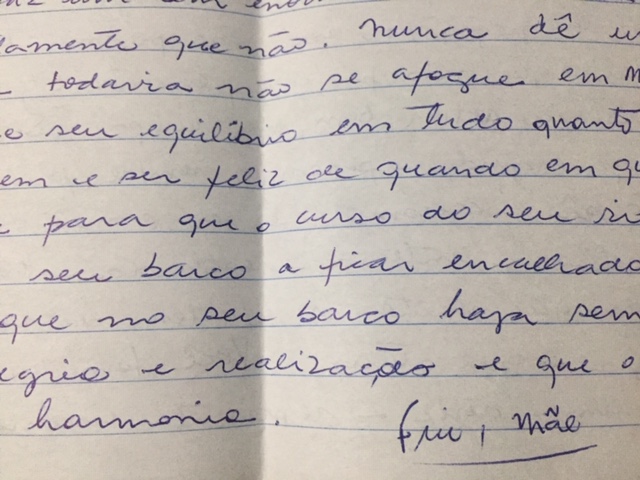 amente que não. nunca dê u
todavia não se afogue em m
e seu equilíbrio em tudo quanto
em e ser feliz de quando em qu
e para que o curso do seu ri
seu barco a ficar encalhado
que no seu barco haja sem
egria e realização e que o
harmonia. mãe